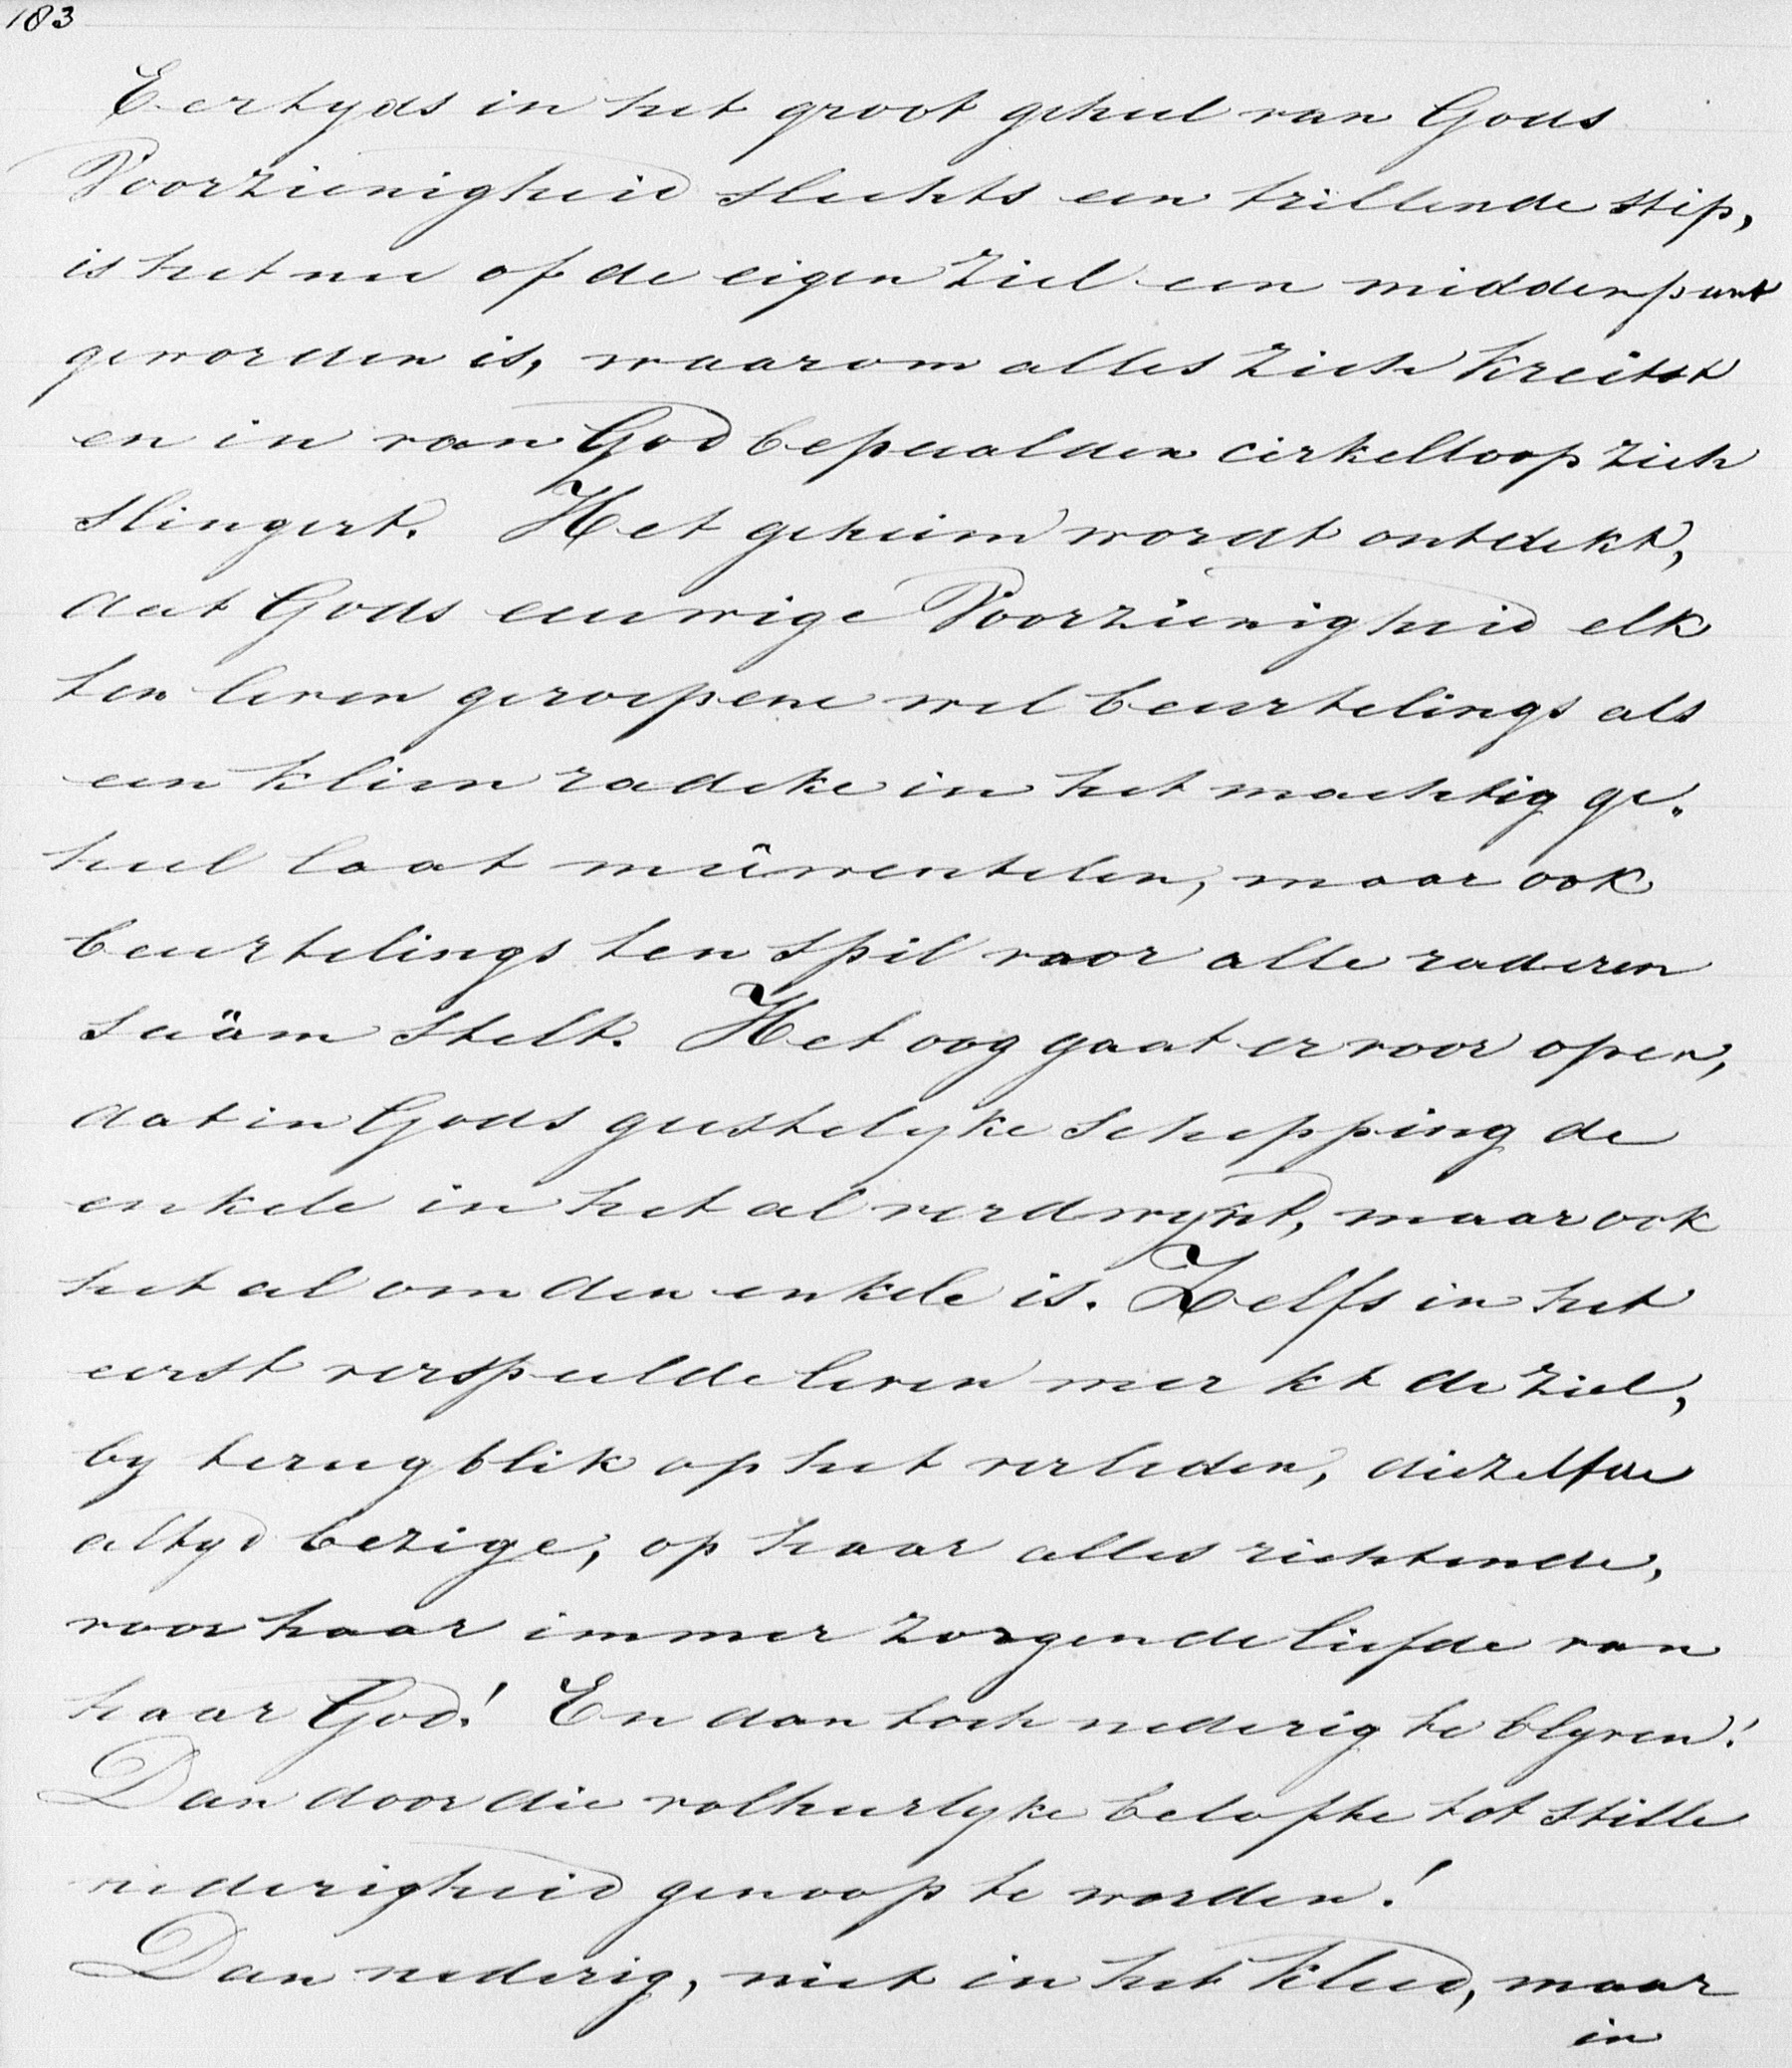 183
Eertyds in het groot geheel van Gods
Voorzienigheid slechts een trillende stip,
is het nu of de eigen ziel een middenpunt
geworden is, waarom alles zich kreitst
en in van God bepaalden cirkelloop zich
slingert. Het geheim wordt ontdekt,
dat Gods eeuwige Voorzienigheid elk
ten leven geroepene wel beurtelings als
een klein radeke in het machtig ge„
heel laat meêwentelen, maar ook
beurtelings ten spil voor alle raderen
saäm stelt. Het oog gaat er voor open,
dat in Gods geestelyke schepping de
enkele in het al verdwynt, maar ook
het al om den enkele is. Zelfs in het
eerst verspeelde leven merkt de ziel,
by terugblik op het verleden, diezelfde
altyd bezige, op haar alles richtende,
voor haar immer zorgende liefde van
haar God! En dan toch nederig te blyven!
Dan door die volheerlyke belofte tot stille
nederigheid genoopt te worden!
Dan nederig, niet in het kleed, maar
in